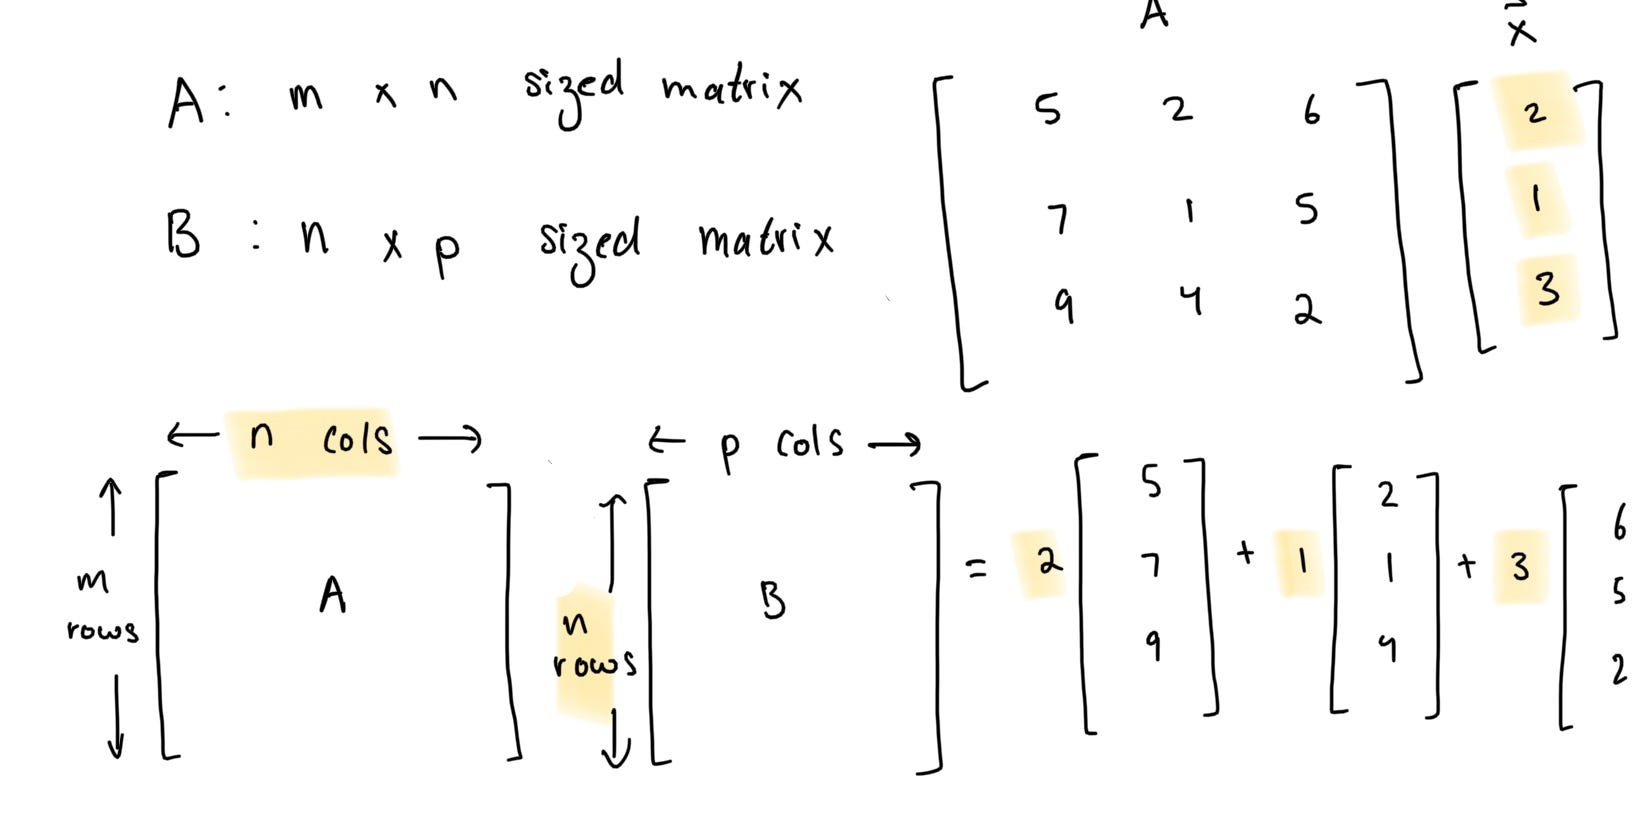 A: m x n sized matrix
B : n x p sized matrix
A x
5 2 6 2
7 1 5 1
9 4 2 3
← n cols →
← p cols →
↑ m rows ↓
A
↑ n rows ↓
B
= 2 [5 7 9] + 1 [2 1 4] + 3 [6 5 2